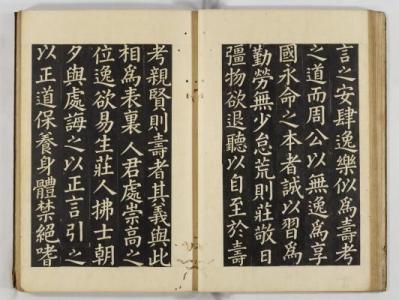 言之安肆逸樂似爲壽考
之道而周公以無逸爲享
國永命之本者誠以習爲
勤勞無少怠荒則莊敬日
彊物欲退聽以自至於壽
考親賢則壽者其義與此
相爲表裏 人君處崇高之
位逸欲易生莊人拂士朝
夕與處誨之以正言引之
以正道保養身體禁絕嗜